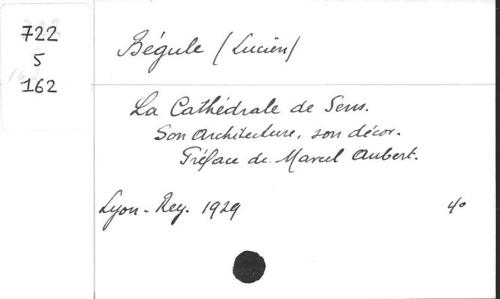 722
5
162
Bégule (Lucien)
La Cathédrale de Sens.
Son architecture, son décor.
Préface de Marcel Aubert.
Lyon - Rey. 1929 4°